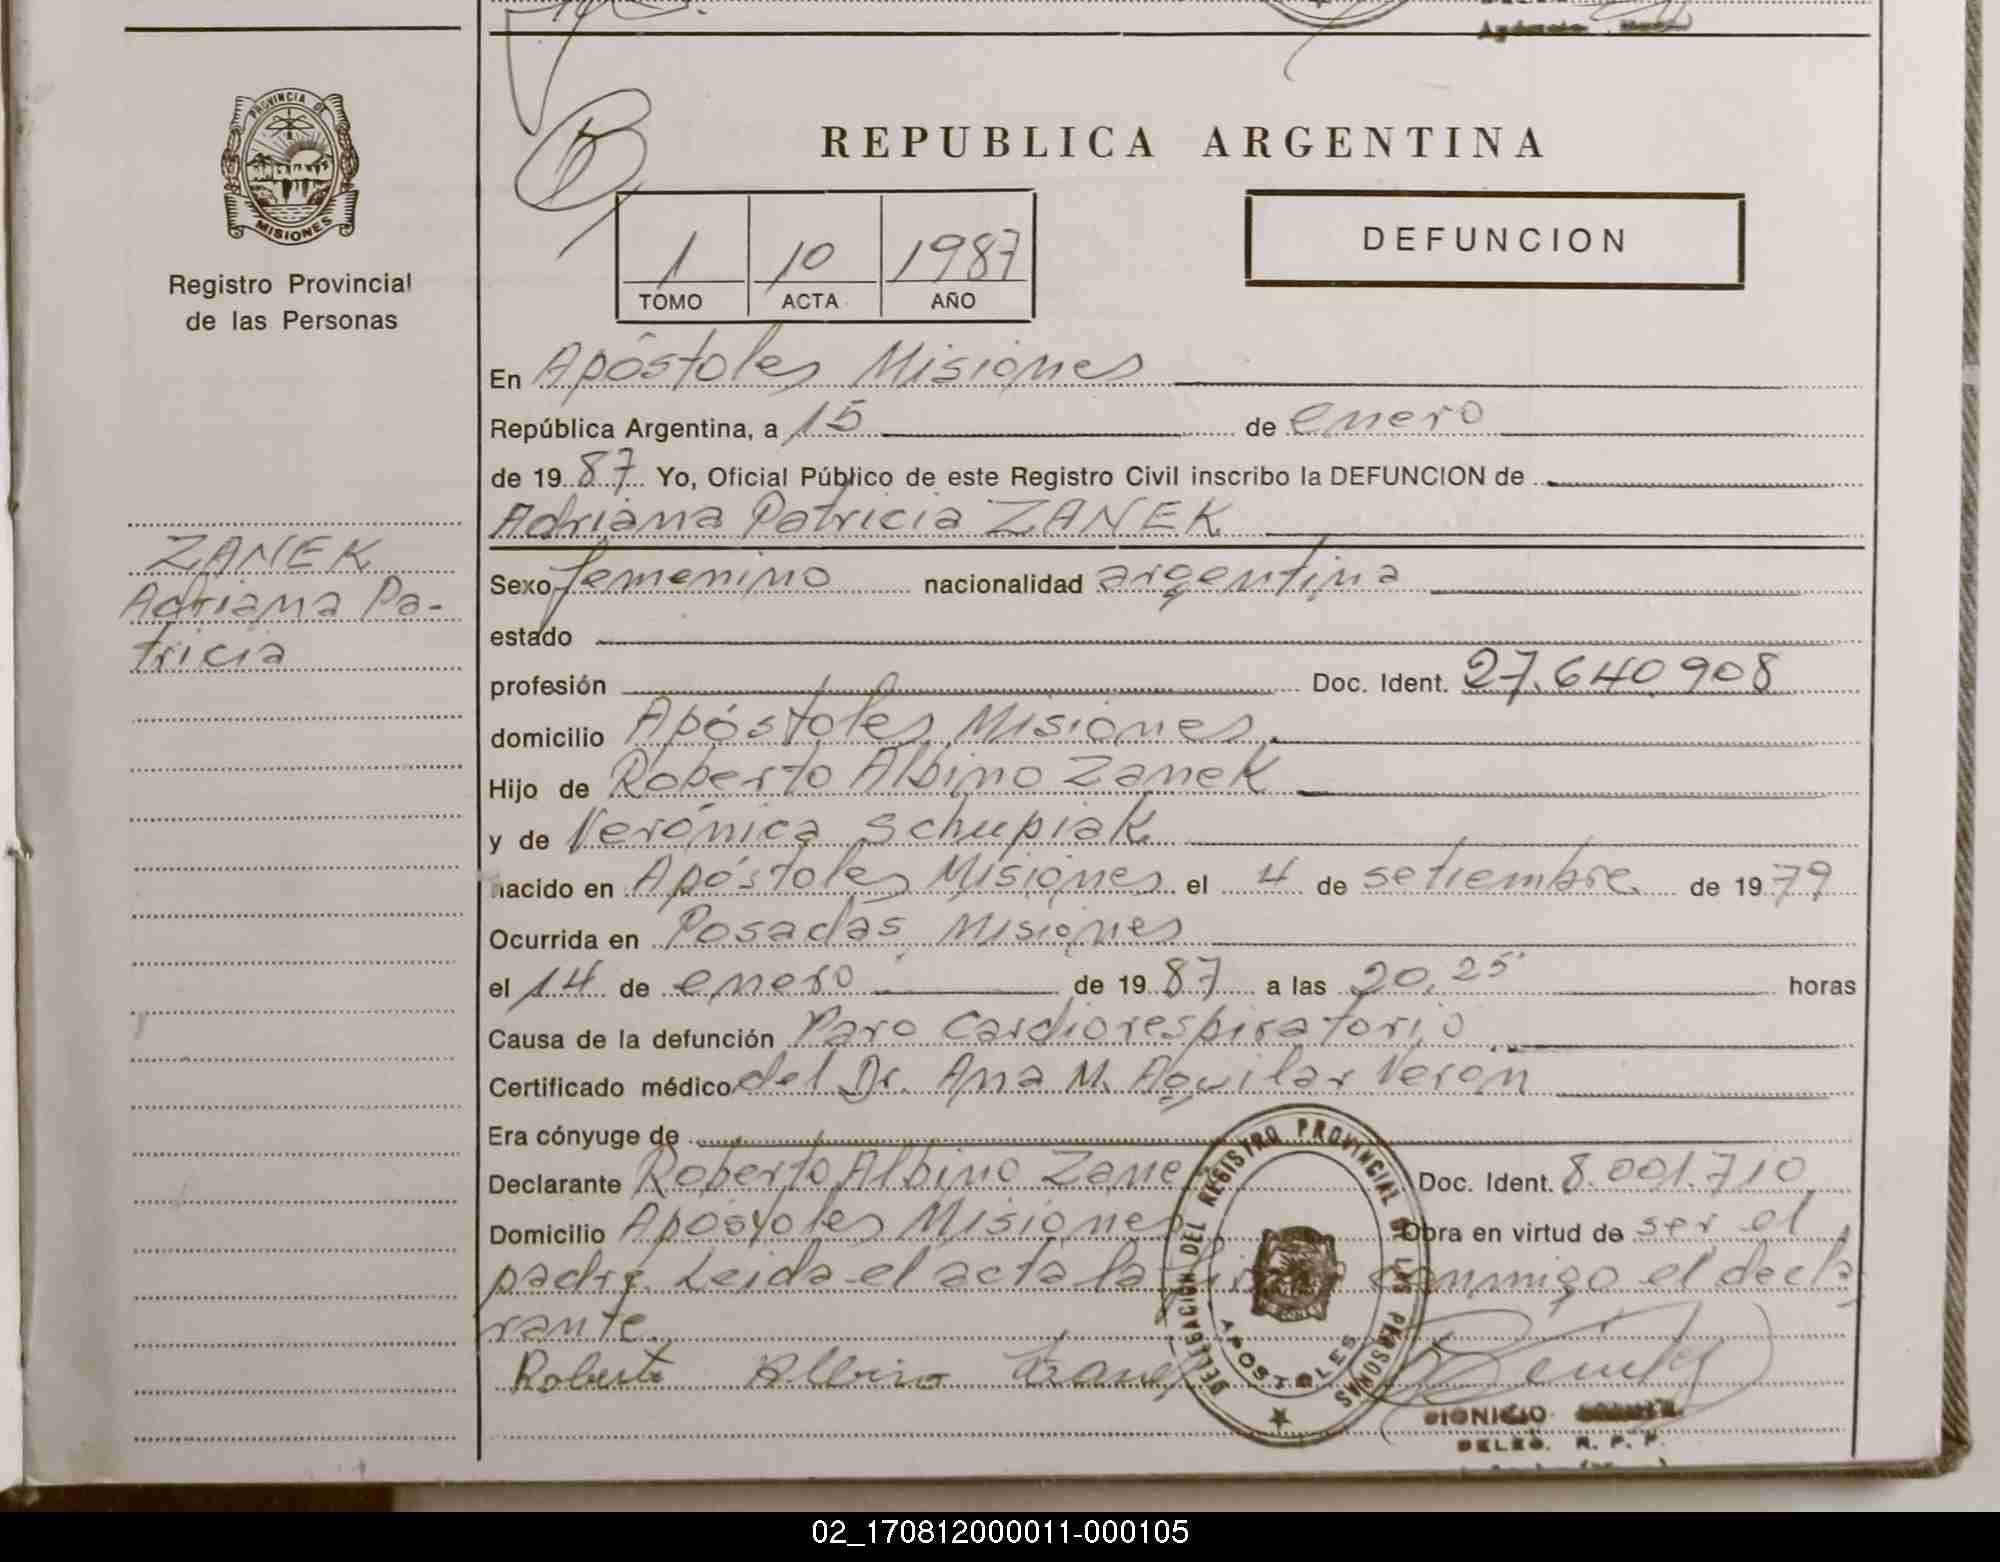 PROVINCIA DE
MISIONES
Registro Provincial
de las Personas
ZANEK
Adriana Pa-
tricia
REPUBLICA ARGENTINA
1 10 1987
TOMO ACTA AÑO
DEFUNCION
En Apóstoles Misiones
República Argentina, a 15 de enero
de 1987 Yo, Oficial Público de este Registro Civil inscribo la DEFUNCION de
Adriana Patricia ZANEK
Sexo femenino nacionalidad argentina
estado
profesión Doc. Ident. 27.640.908
domicilio Apóstoles Misiones
Hijo de Roberto Albino Zanek
y de Verónica Schupiak
nacido en Apóstoles Misiones el 4 de setiembre de 1979
Ocurrida en Posadas Misiones
el 14 de enero de 1987 a las 20,25 horas
Causa de la defunción Paro Cardiorespiratorio
Certificado médico del Dr. Ana M. Aguilar Veron
Era cónyuge de
Declarante Roberto Albino Zane Doc. Ident. 8.001.710
Domicilio Apostoles Misiones Obra en virtud de ser el
padre. Leida el acta la conmigo el decla
rante.
Roberto Albino Zanek
DELEGACION DEL REGISTRO PROVINCIAL DE LAS PERSONAS
APOSTOLES
DIONICIO
DELEG. R. P. P.
02_170812000011-000105